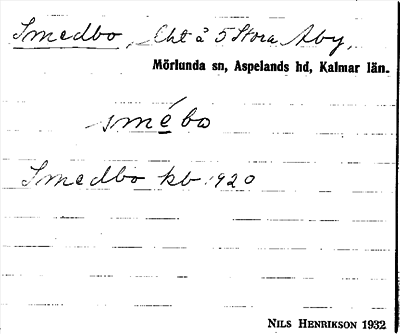 Smedbo, Lht å 5 Stora Åby,
Mörlunda sn, Aspelands hd, Kalmar län.
smébo
Smedbo kb 1920
NILS HENRIKSON 1932